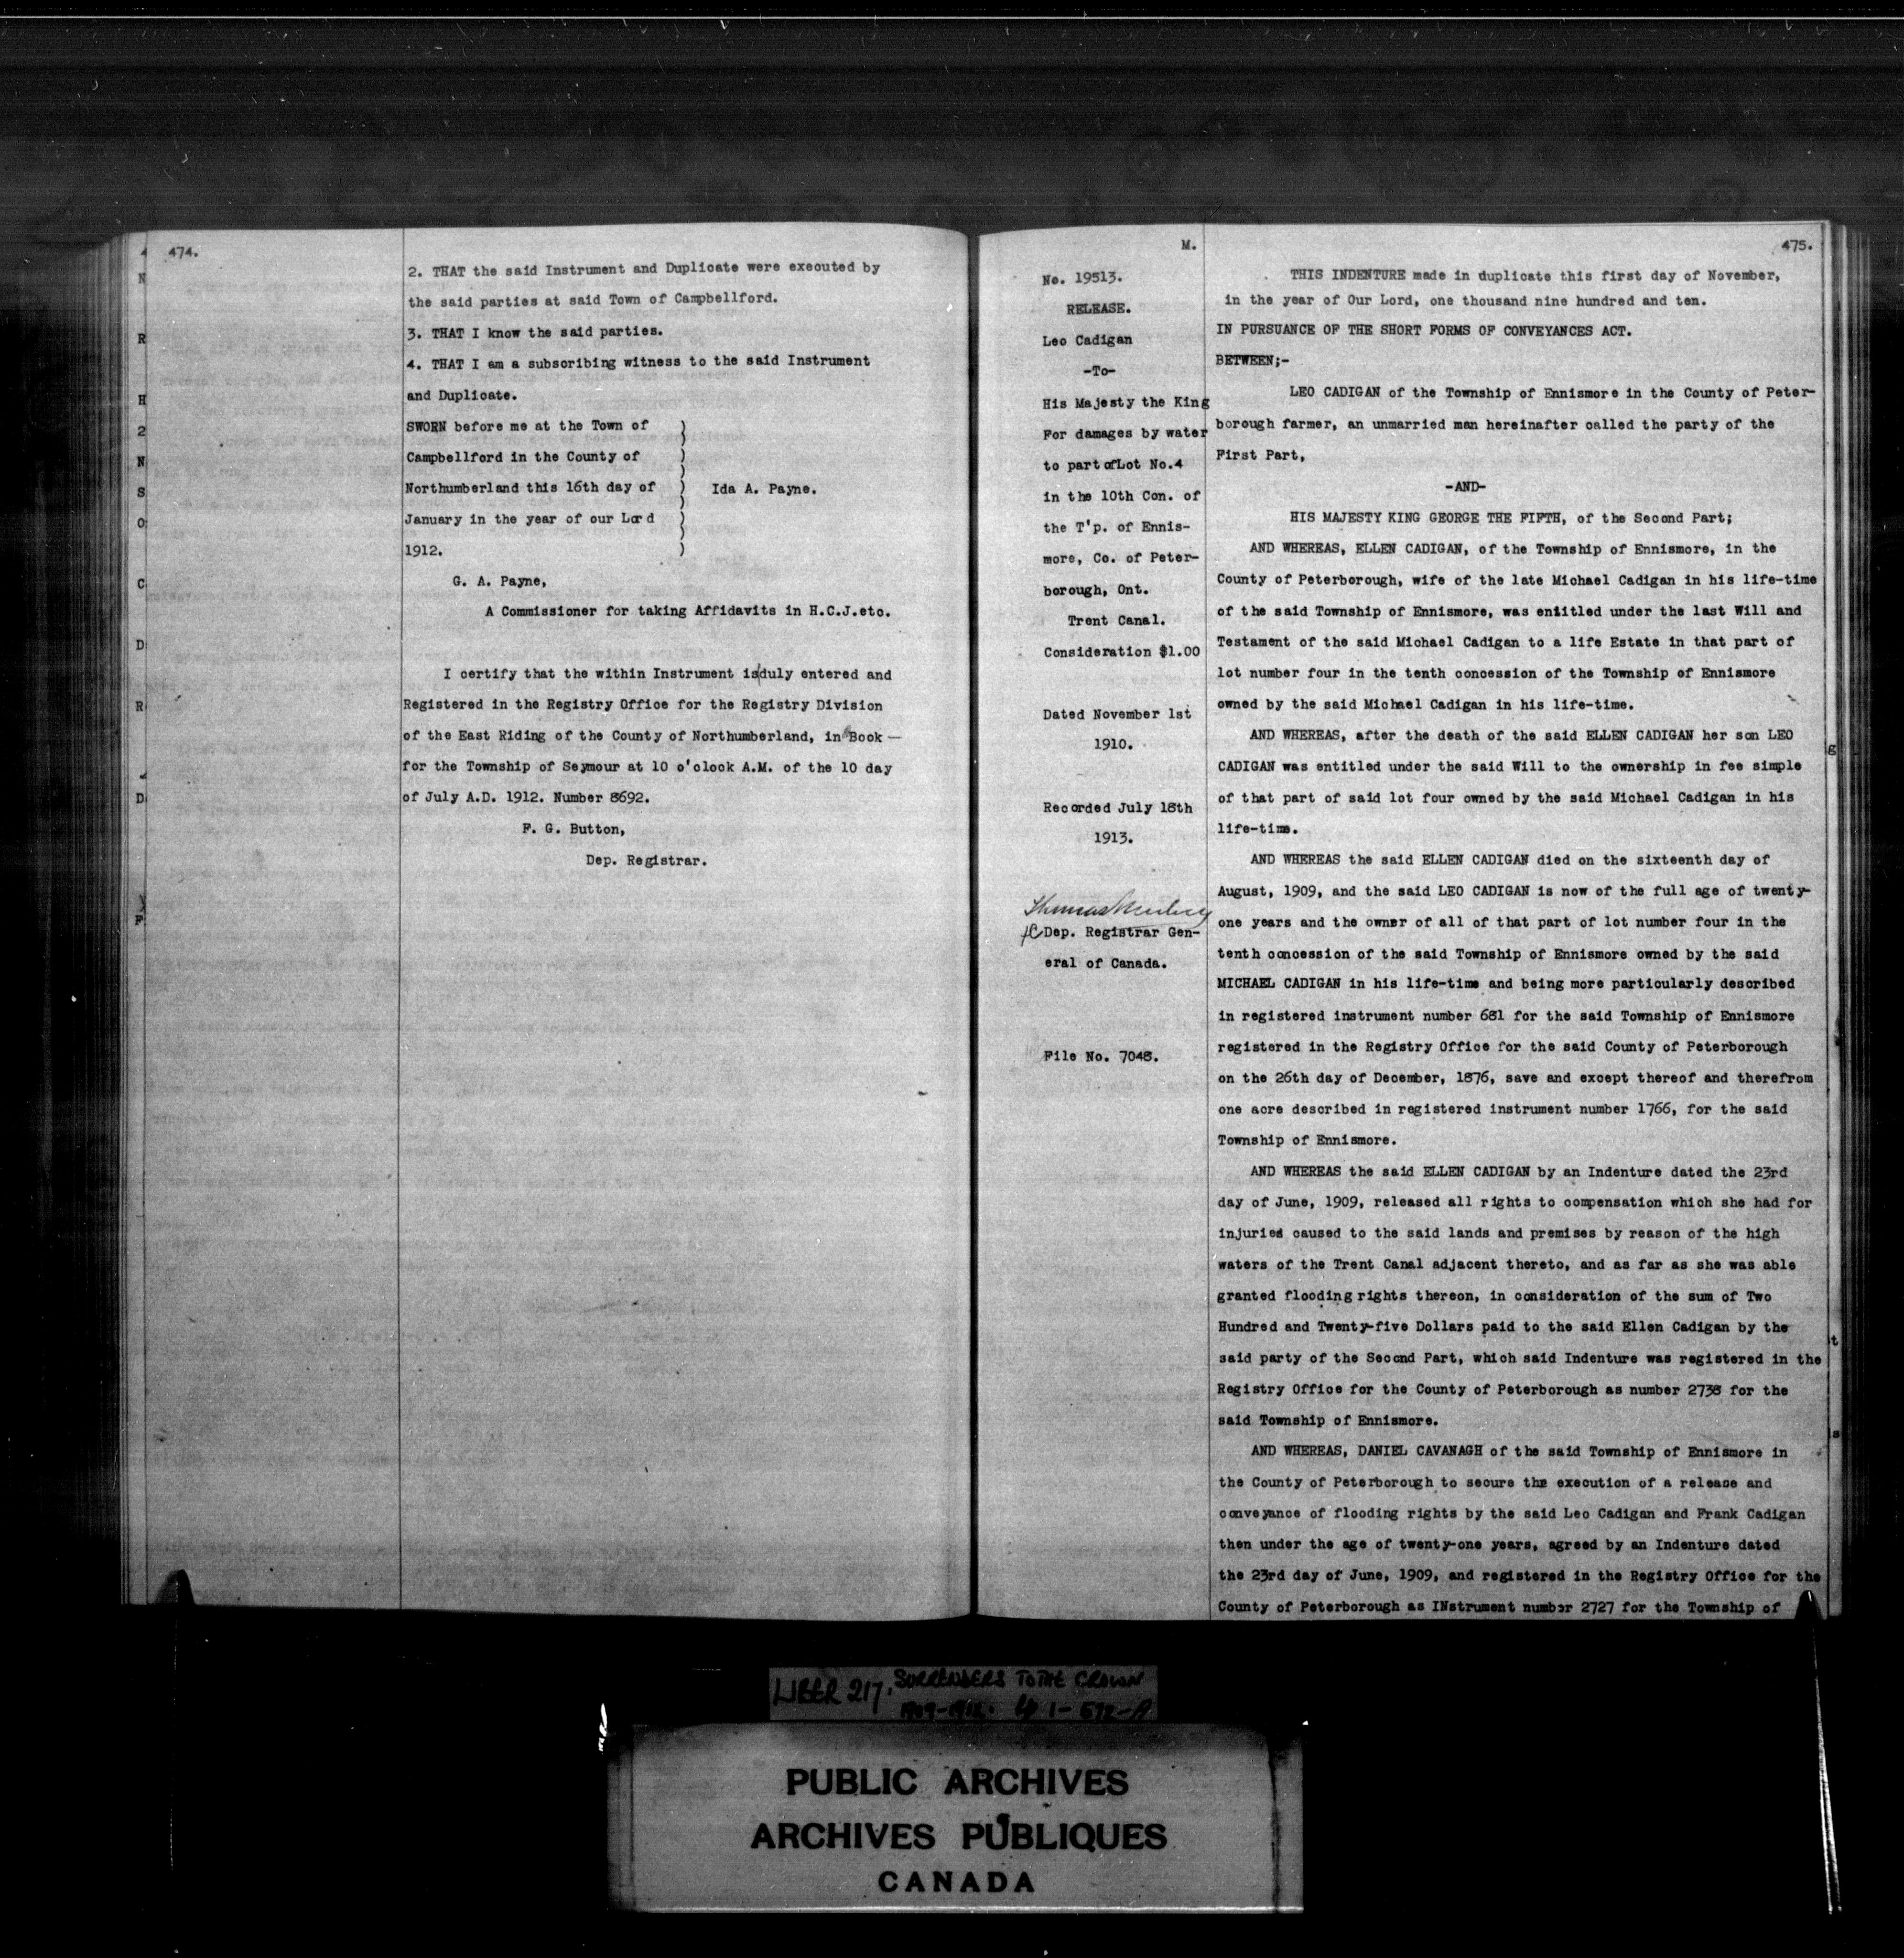 474.
2. THAT the said Instrument and Duplicate were executed by
the said parties at said Town of Campbellford.
3. THAT I know the said parties.
4. THAT I am a subscribing witness to the said Instrument
and Duplicate.
SWORN before me at the Town of )
Campbellford in the County of )
Northumberland this 16th day of ) Ida A. Payne.
January in the year of our Lord )
1912. )
G. A. Payne,
A Commissioner for taking Affidavits in H.C.J.etc.
I certify that the within Instrument is/duly entered and
Registered in the Registry Office for the Registry Division
of the East Riding of the County of Northumberland, in Book —
for the Township of Seymour at 10 o'clock A.M. of the 10 day
of July A.D. 1912. Number 8692.
F. G. Button,
Dep. Registrar.
M.
No. 19513.
RELEASE.
Leo Cadigan
-To-
His Majesty the King
For damages by water
to part of Lot No.4
in the 10th Con. of
the T'p. of Ennis-
more, Co. of Peter-
borough, Ont.
Trent Canal.
Consideration $1.00
Dated November 1st
1910.
Recorded July 18th
1913.
Thomas
Dep. Registrar Gen-
eral of Canada.
File No. 7048.
475.
THIS INDENTURE made in duplicate this first day of November,
in the year of Our Lord, one thousand nine hundred and ten.
IN PURSUANCE OF THE SHORT FORMS OF CONVEYANCES ACT.
BETWEEN;-
LEO CADIGAN of the Township of Ennismore in the County of Peter-
borough farmer, an unmarried man hereinafter called the party of the
First Part,
-AND-
HIS MAJESTY KING GEORGE THE FIFTH, of the Second Part;
AND WHEREAS, ELLEN CADIGAN, of the Township of Ennismore, in the
County of Peterborough, wife of the late Michael Cadigan in his life-time
of the said Township of Ennismore, was eniitled under the last Will and
Testament of the said Michael Cadigan to a life Estate in that part of
lot number four in the tenth concession of the Township of Ennismore
owned by the said Michael Cadigan in his life-time.
AND WHEREAS, after the death of the said ELLEN CADIGAN her son LEO
CADIGAN was entitled under the said Will to the ownership in fee simple
of that part of said lot four owned by the said Michael Cadigan in his
life-time.
AND WHEREAS the said ELLEN CADIGAN died on the sixteenth day of
August, 1909, and the said LEO CADIGAN is now of the full age of twenty-
one years and the owner of all of that part of lot number four in the
tenth concession of the said Township of Ennismore owned by the said
MICHAEL CADIGAN in his life-time and being more particularly described
in registered instrument number 681 for the said Township of Ennismore
registered in the Registry Office for the said County of Peterborough
on the 26th day of December, 1876, save and except thereof and therefrom
one acre described in registered instrument number 1766, for the said
Township of Ennismore.
AND WHEREAS the said ELLEN CADIGAN by an Indenture dated the 23rd
day of June, 1909, released all rights to compensation which she had for
injuries caused to the said lands and premises by reason of the high
waters of the Trent Canal adjacent thereto, and as far as she was able
granted flooding rights thereon, in consideration of the sum of Two
Hundred and Twenty-five Dollars paid to the said Ellen Cadigan by the
said party of the Second Part, which said Indenture was registered in the
Registry Office for the County of Peterborough as number 2738 for the
said Township of Ennismore.
AND WHEREAS, DANIEL CAVANAGH of the said Township of Ennismore in
the County of Peterborough to secure the execution of a release and
conveyance of flooding rights by the said Leo Cadigan and Frank Cadigan
then under the age of twenty-one years, agreed by an Indenture dated
the 23rd day of June, 1909, and registered in the Registry Office for the
County of Peterborough as INstrument number 2727 for the Township of
LIBER 217. SURRENDERS TO THE CROWN
1909-1912. 1-592-A
PUBLIC ARCHIVES
ARCHIVES PUBLIQUES
CANADA